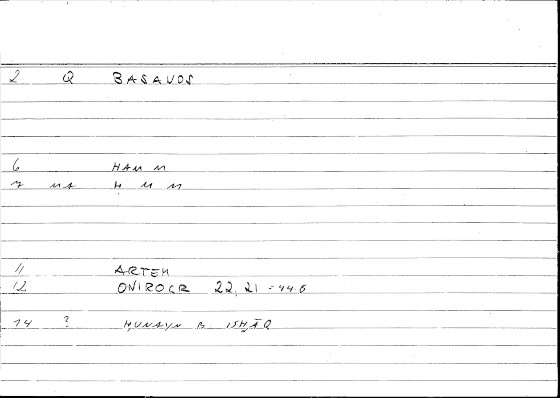 2 Q BASAUOS
6 HAM M
7 MA H M M
11 ARTEM
12 ONIROCR 22, 21 = 44.6
14 ? ḤUNAYN B ISḤĀQ